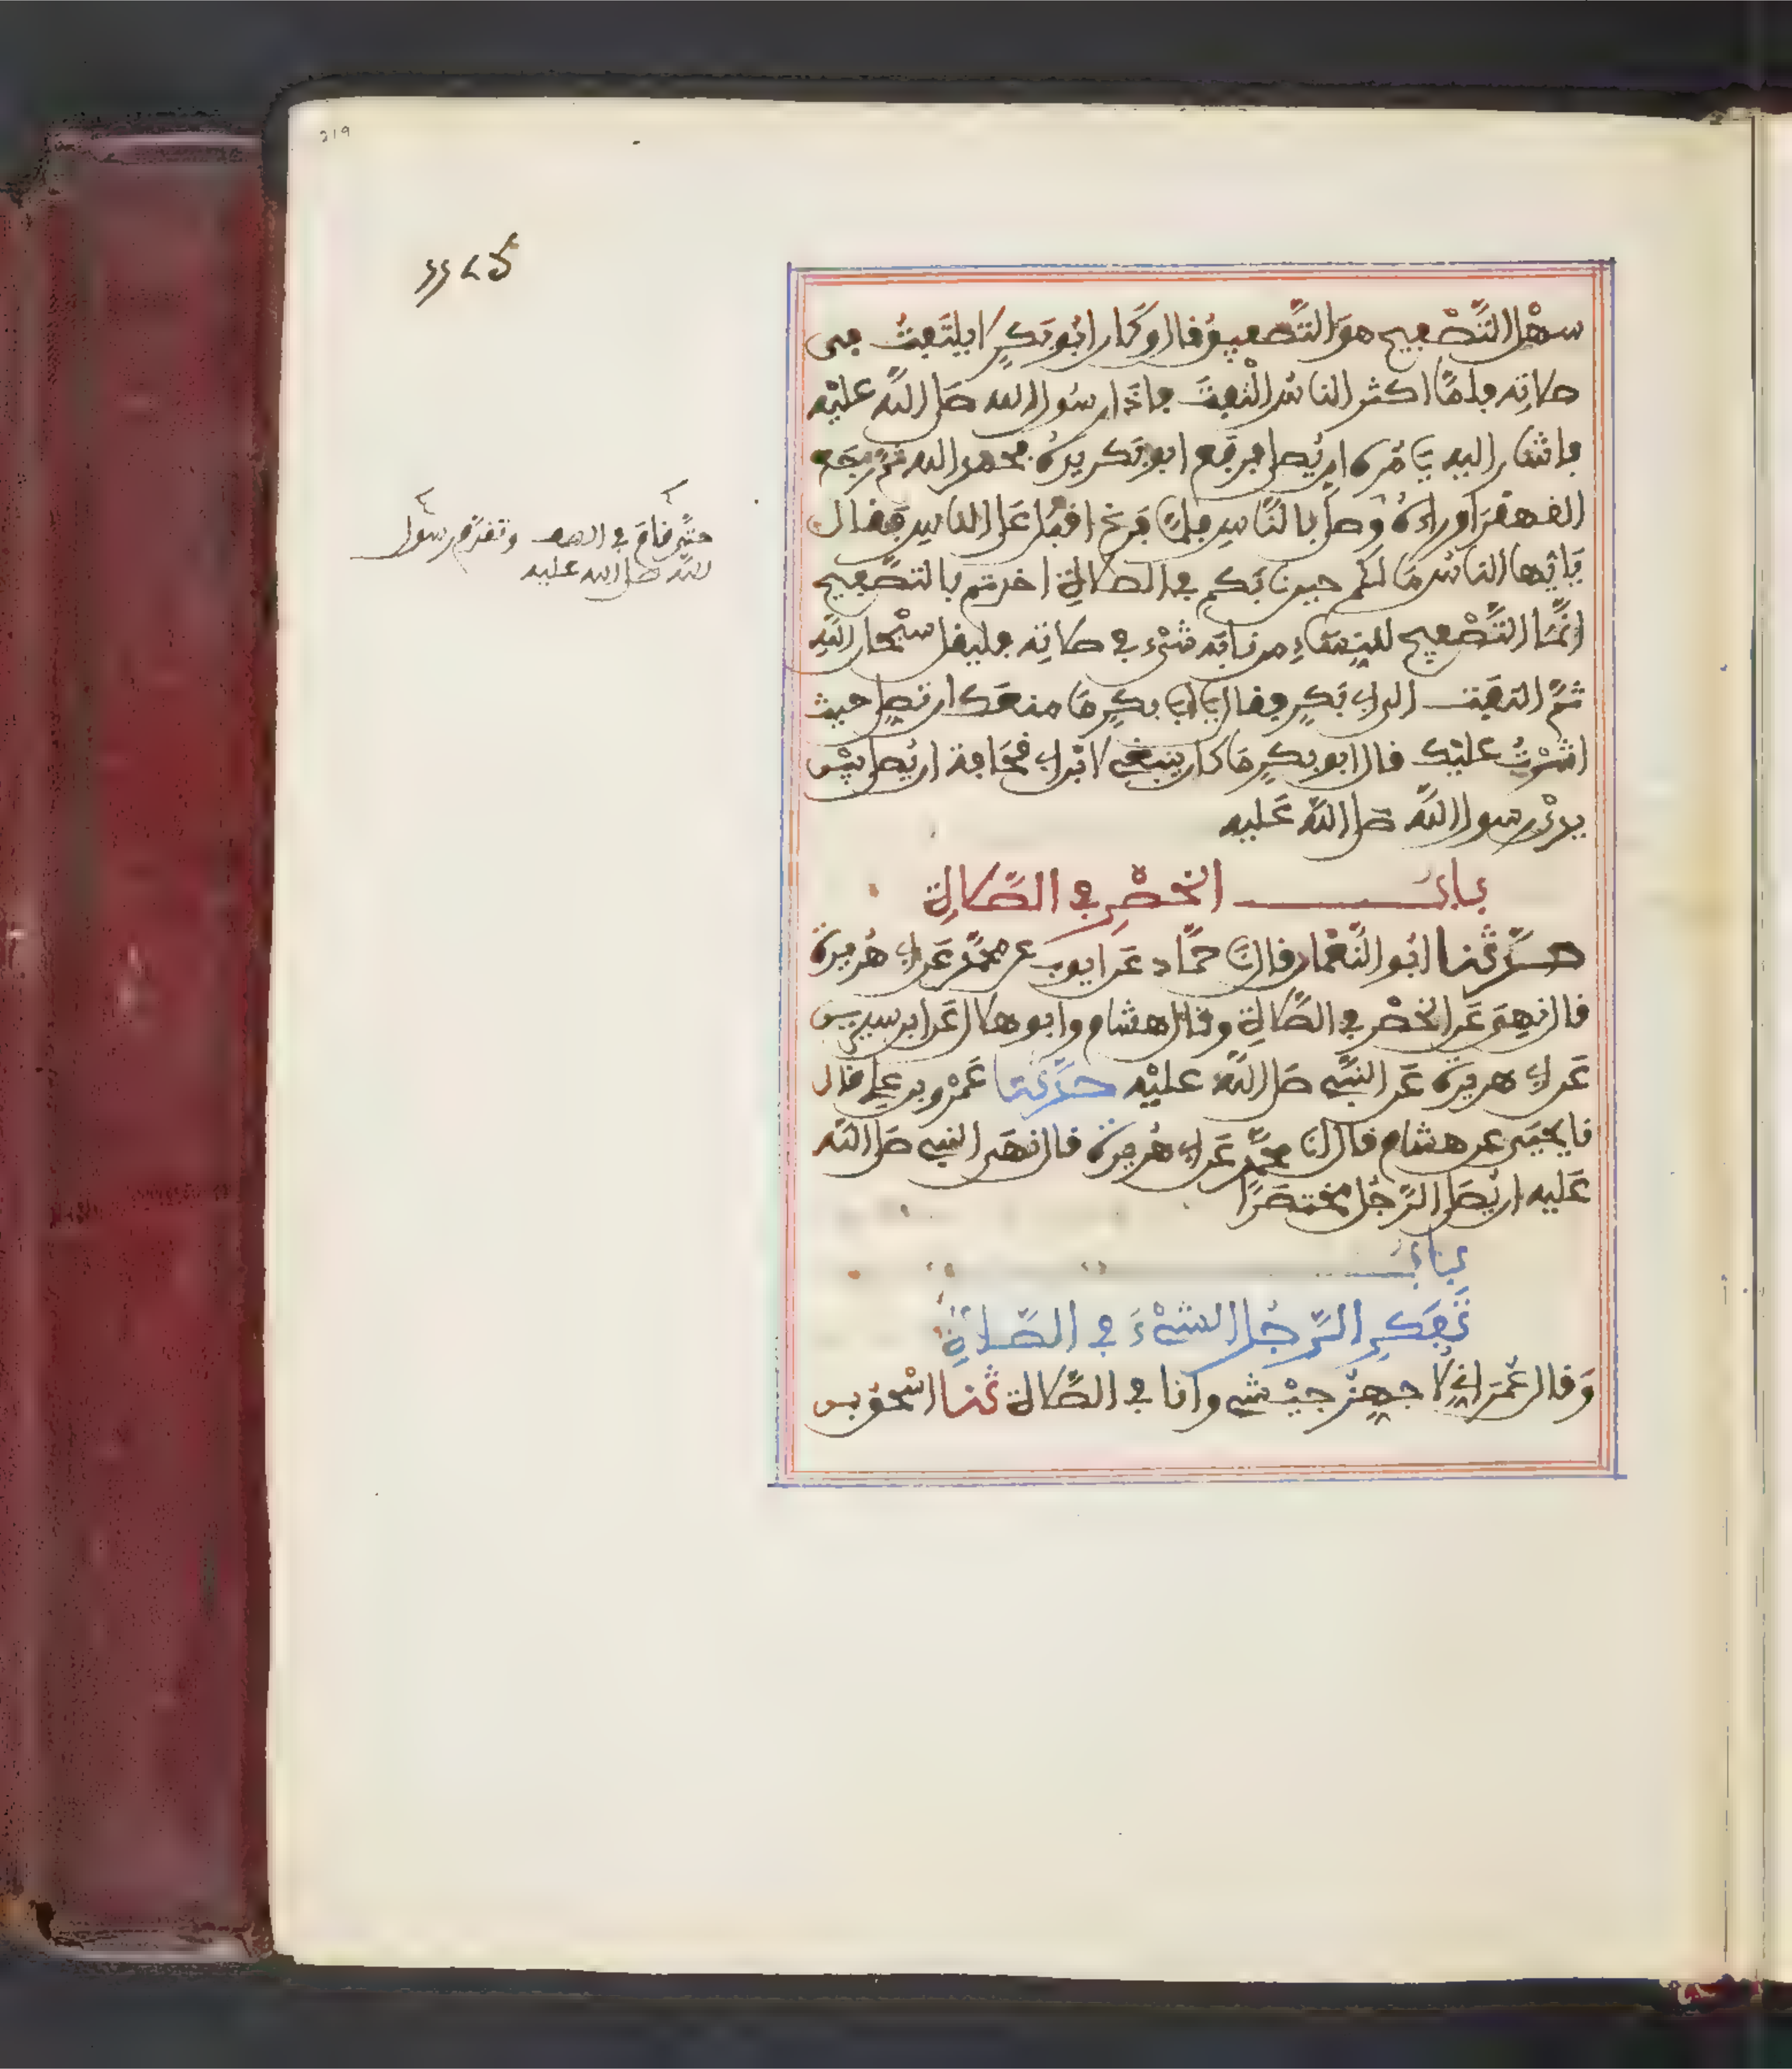 219
سهل التَّصْفيح هو التَّصفيق قال وكان ابو بكرٍ لا يلتفت في
صلاته فلمّا اكثر الناس الْتفت فاذا رسول الله صلى الله عليه
فاشار اليه يامره ان يُصلي فرفع ابو بكر يده فحمد الله ثم رجع
القهقرا وراءه وصلى بالنّاس فلمّا فرغ اقبل على الناس فقال
يا ايها الناس ما لكم حين نابكم في الصلاة اخذتم بالتصفيح
انّما التَّصْفيح للنساء من نابه شيء في صلاته فليقل سبْحان الله
ثم التفت الى ابي بكر فقال يا ابا بكر ما منعك ان تصلي حيث
اشرْتُ عليك قال ابو بكر ما كان ينبغي لابن ابي قحافة ان يصلي بين
يدي رسول الله صلى الله عليه
باب الخصْر في الصّلاة
حدّثنا ابو النّعمان قال نا حمّاد عن ايوب عن محمّد عن ابي هريرة
قال نُهِي عن الخصْر في الصّلاة وقال هشام وابو هلال عن ابن سيرين
عن ابي هريرة عن النبيّ صلى الله عليه حدّثنا عمْرو بن علي قال
نا يحيى عن هشام قال نا محمّد عن ابي هريرة قال نهى النبي صلى الله
عليه ان يُصلي الرّجل مختصرًا
باب
تفكر الرّجل الشيْء في الصّلاة
وقال عُمر اني لا جهز جيْشي وانا في الصّلاة ثنا اسْحق بن
حتى قام في الصف وتقدّم رسول
الله صلى الله عليه